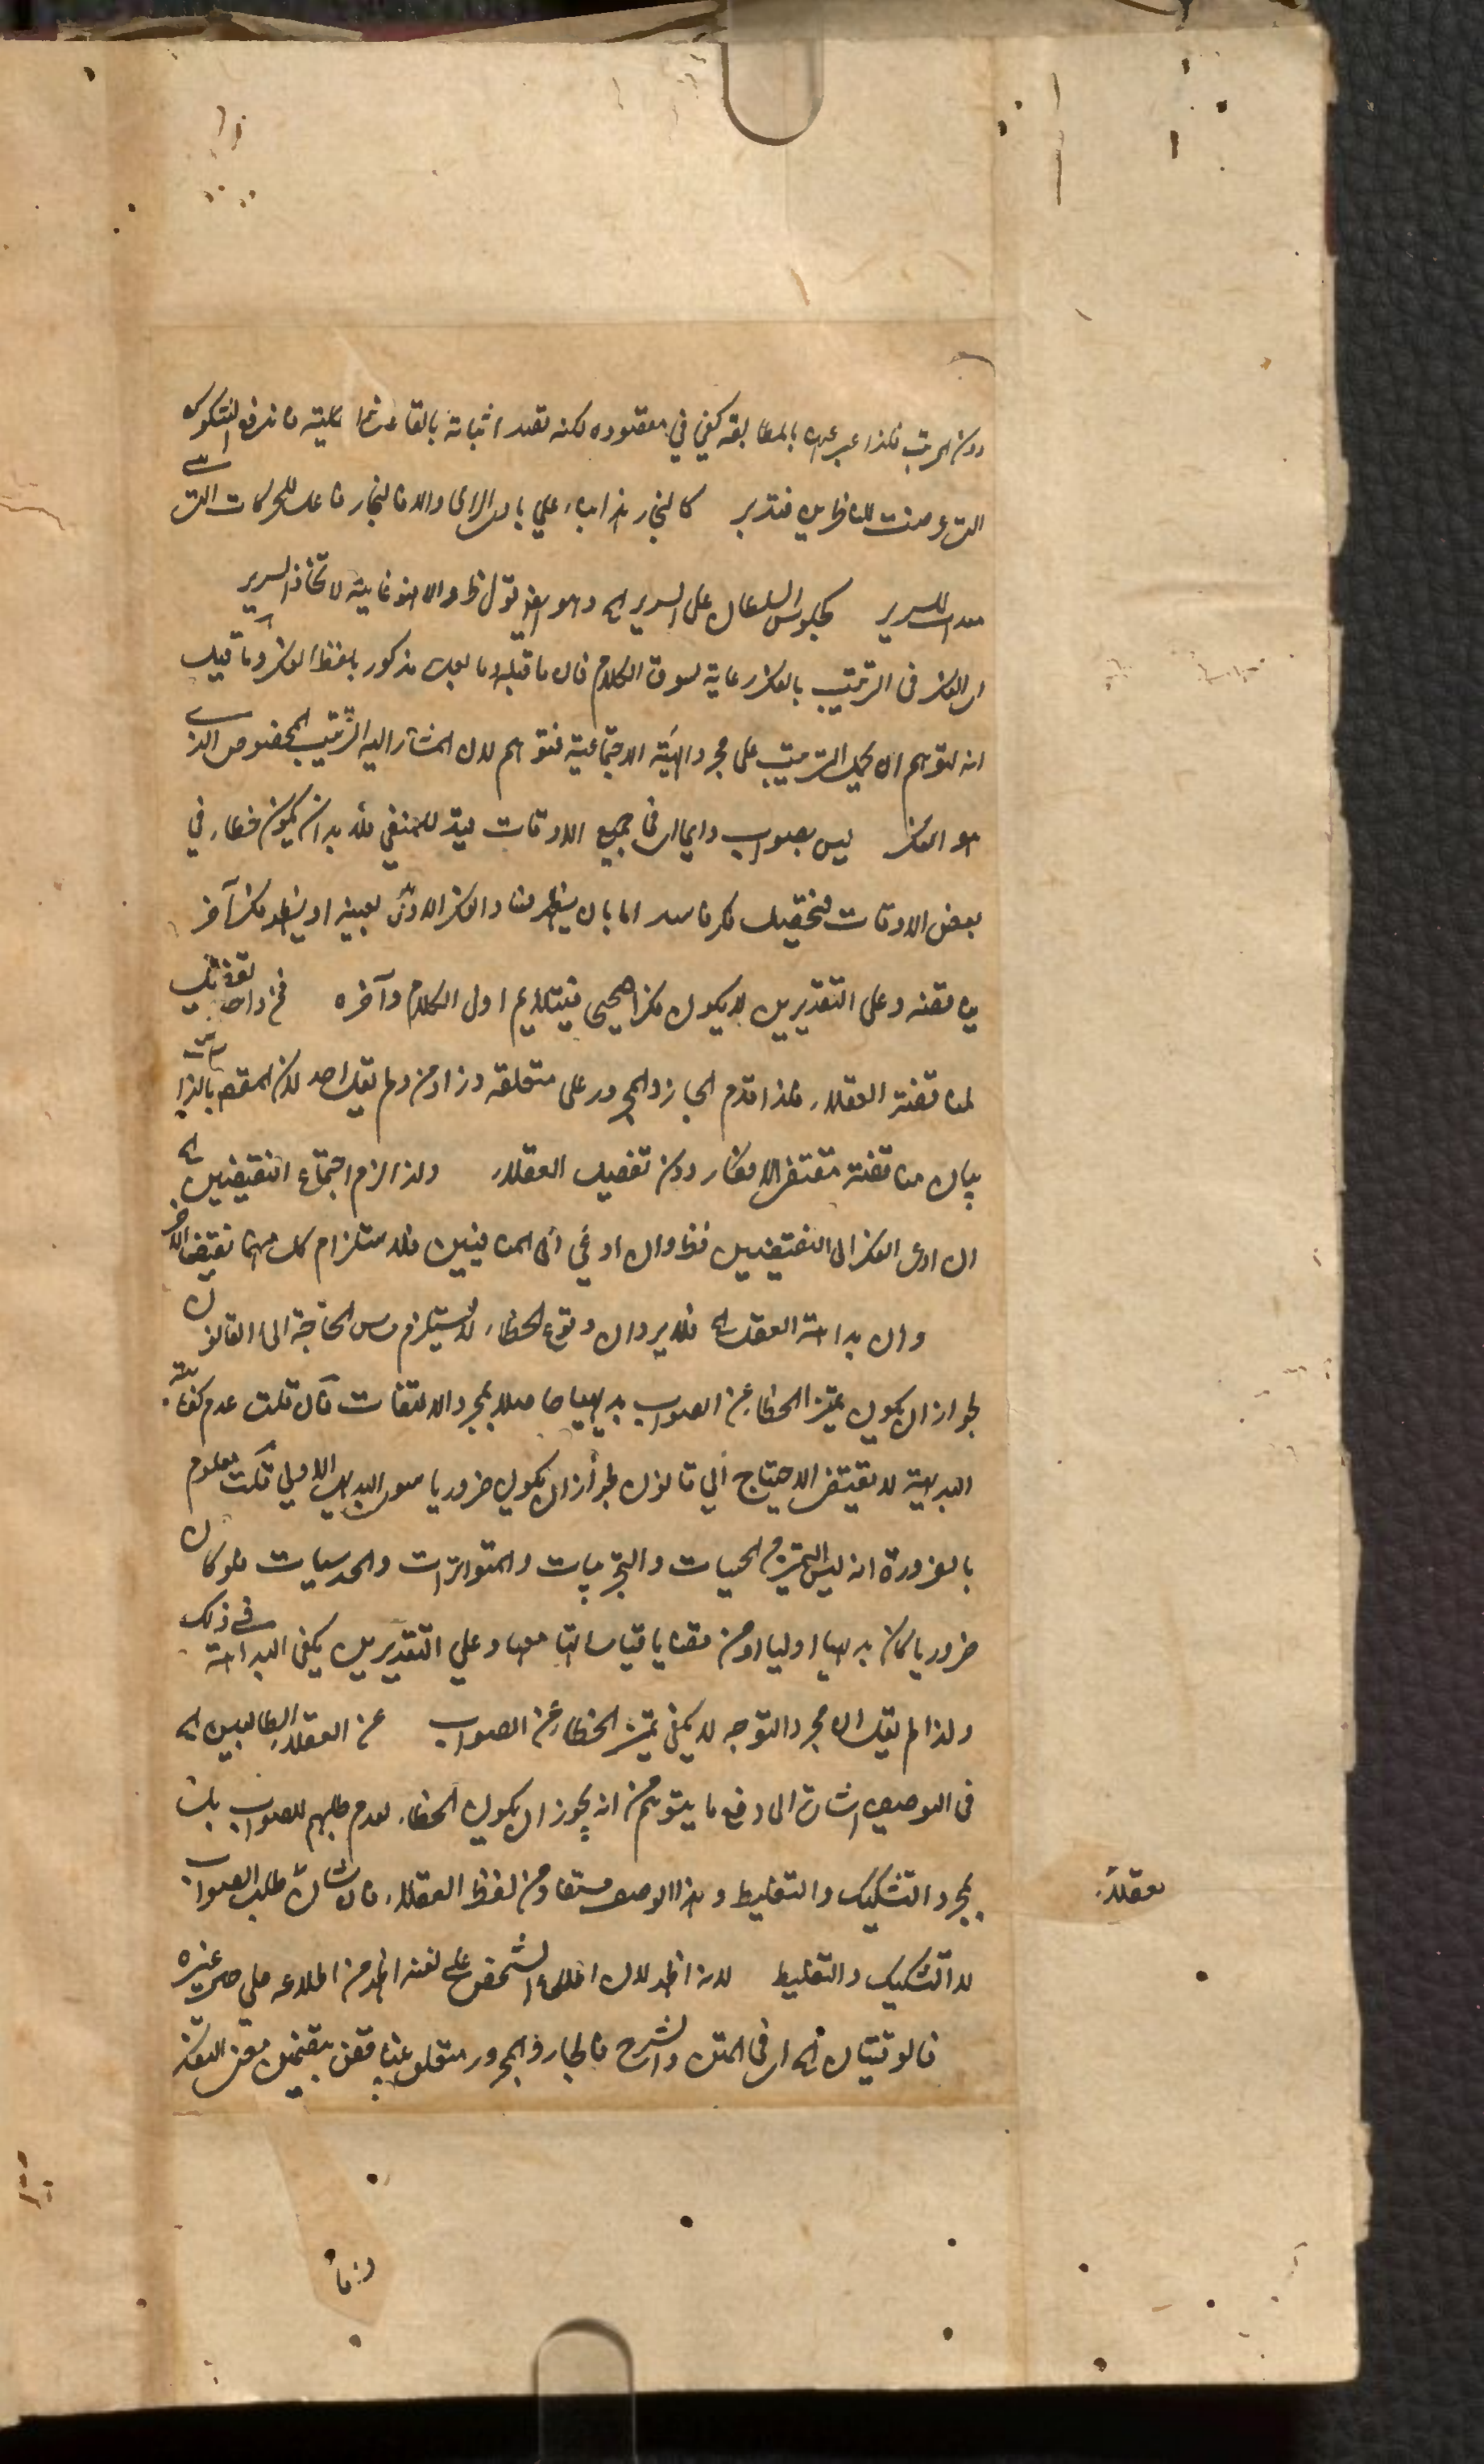 دون المرتب فلذا عبر عنها بالمطابقة كفى في مقصوده لكنه قصد اثباته بالقاعدة الكلية فاندفع الشكوك
التي عرضت للناظرين فتدبر كالنجار هذا بناء على بادى الراى والا فالنجار فاعل للحركات التي
للسرير كجلوس السلطان على السرير الخ وهو الغاية لاتخاذ السرير
الفكر في الترتيب بالفكر رعاية لسوق الكلام فان ما قبله وما بعده مذكور بلفظ الفكر وما قيل
انه لتوهم ان يحمل الترتيب على مجرد الهيئة الاجتماعية فتوهم لان المشار اليه الترتيب المخصوص الذي
هو الفكر ليس بصواب دايما اى في جميع الاوقات قيد للمنفي فلا بد ان يكون خطاء في
بعض الاوقات فيتحقق فكر فاسد اما بان يظهر فساد الفكر الاول بعينه او يظهر فكر آخر
يناقضه وعلى التقديرين لا يكون فكرا صحيحا فيتلايم اول الكلام وآخره
لمناقضة العقلاء فلذا قدم الجار والمجرور على متعلقه وزاد من ولم يقل احد لان المقصود بالذات
بيان مناقضة مقتضى الافكار دون تفصيل العقلاء ولذا لزم اجتماع النقيضين الخ
ان ادى الفكر الى النقيضين فظ وان ادى الى المتنافيين فلاستلزام كل منهما نقيض الآخر
وان بداهة العقل الخ فلا يرد ان وقوع الخطاء لا يستلزم مس الحاجة الى القانون
لجواز ان يكون تميز الخطاء عن الصواب بديهيا حاصلا بمجرد الالتفات فان قلت عدم كفاية
البديهية لا يقتضى الاحتياج الى قانون لجواز ان يكون ضروريا سوى البديهى الاولي قلت معلوم
بالضرورة انه ليس التميز من الحسيات والتجربيات والمتواترات والحدسيات فلو كان
ضروريا كان بديهيا اوليا او من قضايا قياساتها معها وعلى التقديرين يكفى البداهة في ذلك
ولذا لم يقل ان مجرد التوجه لا يكفى تميز الخطاء عن الصواب عن العقلاء الطالبين الخ
في التوصيف اشارة الى دفع ما يتوهم من انه يجوز ان يكون الخطاء لعدم طلبهم للصواب بل
بمجرد التشكيك والتغليط وهذا الوصف مستفاد من لفظ العقلاء فان شان العقلاء طلب الصواب
لا التشكيك والتغليط لانه اظهر لان اطلاع الشخص على نفسه اظهر من اطلاعه على حال غيره
في المتن والشرح فالجار والمجرور متعلق بيناقض بتضمين معنى